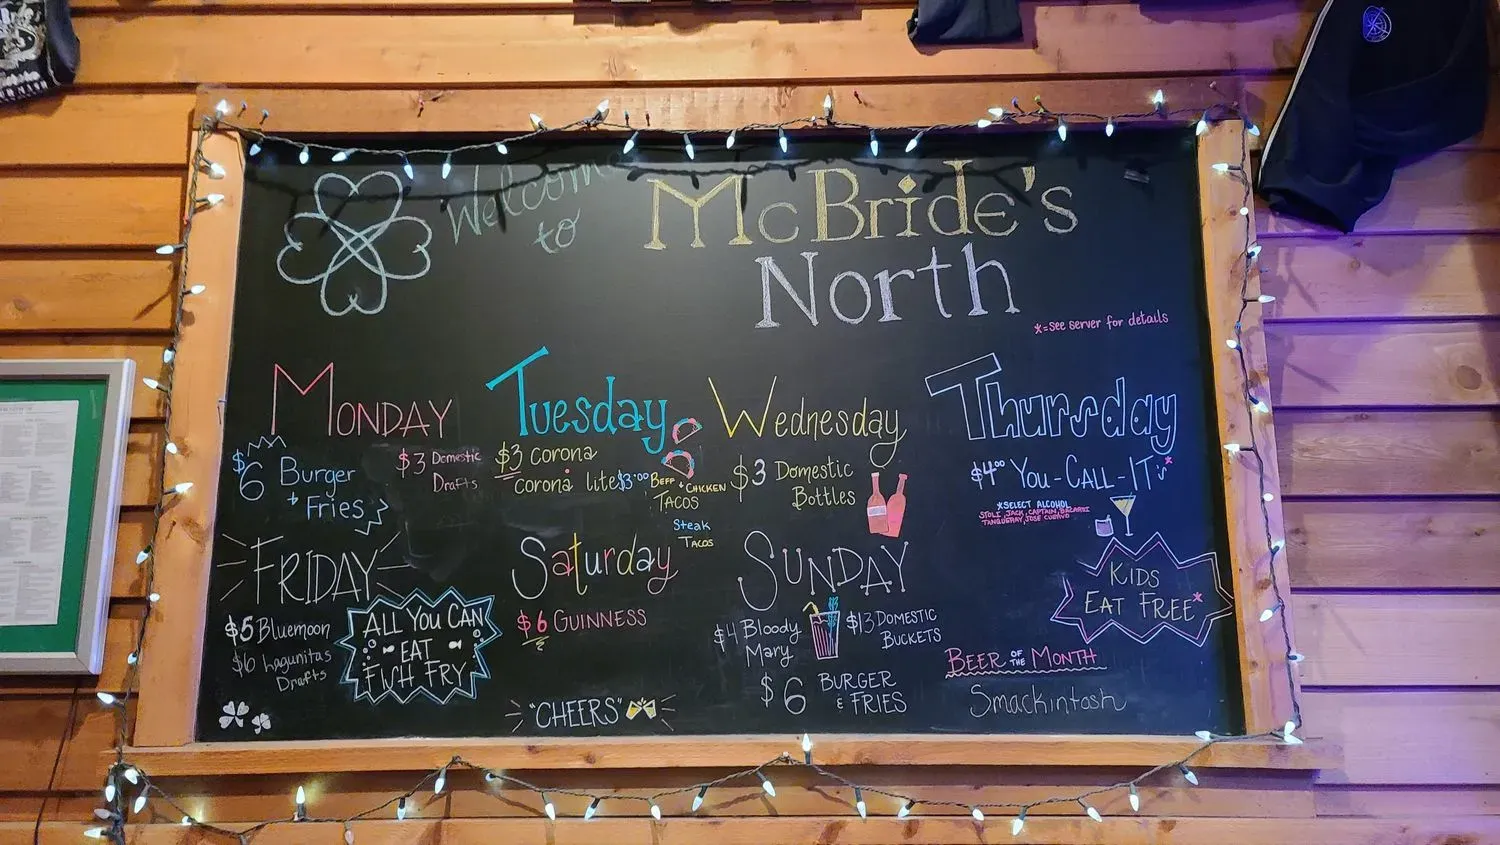 Welcome
to
McBride's
North
*=see server for details
MONDAY
$6 Burger
+ Fries
$3 Domestic
Drafts
Tuesday
$3 corona
corona lite
$3.00 BEEF + CHICKEN
TACOS
Steak
TACOS
Wednesday
$3 Domestic
Bottles
Thursday
$4.00 YOU-CALL-IT*
*SELECT ALCOHOL
STOLI, JACK, CAPTAIN, BACARDI
TANQUERAY, JOSE CUERVO
KIDS
EAT FREE*
FRIDAY
$5 Bluemoon
$6 Lagunitas
Drafts
ALL YOU CAN
EAT
FISH FRY
Saturday
$6 GUINNESS
"CHEERS"
SUNDAY
$4 Bloody
Mary
$13 DOMESTIC
BUCKETS
$6 BURGER
& FRIES
BEER OF THE MONTH
Smackintosh